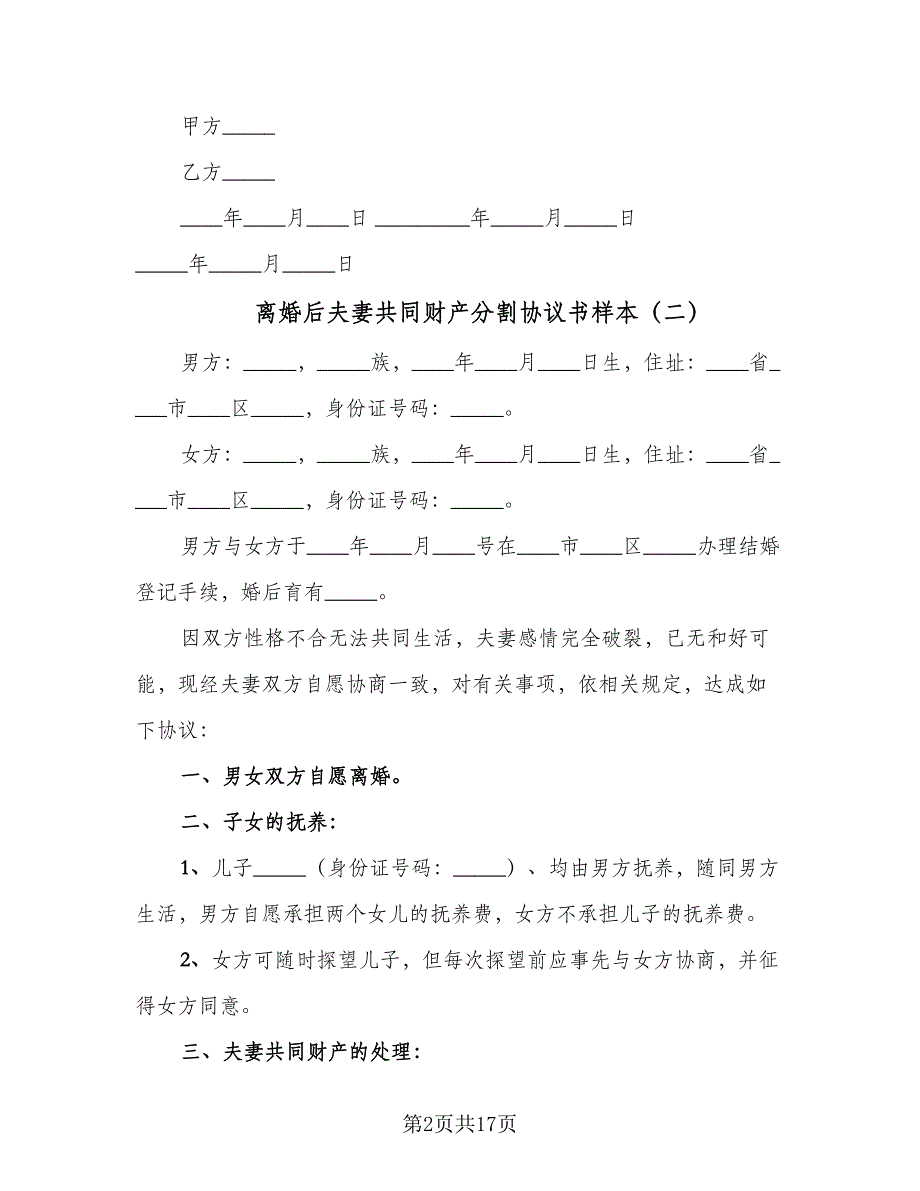 甲方_____
乙方_____
____年____月____日 _________年_____月_____日
_____年_____月_____日
离婚后夫妻共同财产分割协议书样本（二）
男方：_____，_____族，____年____月____日生，住址：____省_
___市____区_____，身份证号码：_____。
女方：_____，_____族，____年____月____日生，住址：____省_
___市____区_____，身份证号码：_____。
男方与女方于____年____月____号在____市____区_____办理结婚
登记手续，婚后育有_____。
因双方性格不合无法共同生活，夫妻感情完全破裂，已无和好可
能，现经夫妻双方自愿协商一致，对有关事项，依相关规定，达成如
下协议：
一、男女双方自愿离婚。
二、子女的抚养：
1、儿子_____（身份证号码：_____）、均由男方抚养，随同男方
生活，男方自愿承担两个女儿的抚养费，女方不承担儿子的抚养费。
2、女方可随时探望儿子，但每次探望前应事先与女方协商，并征
得女方同意。
三、夫妻共同财产的处理：
第2页共17页